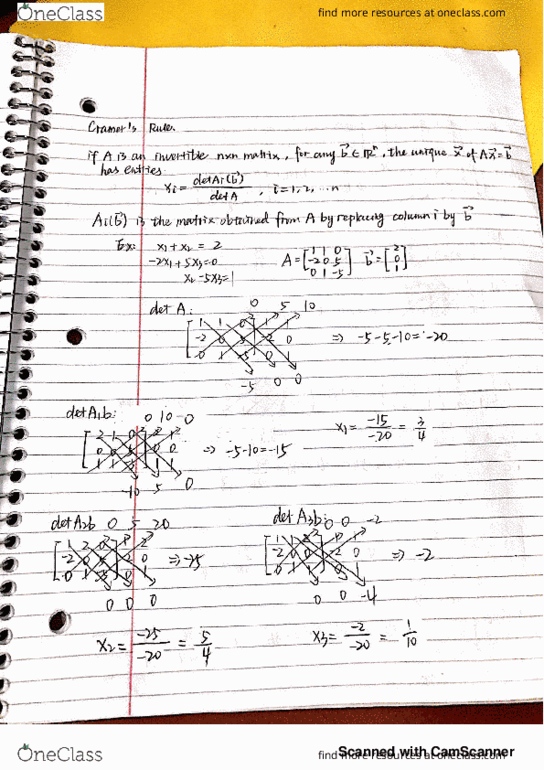 OneClass
find more resources at oneclass.com
Cramer's Rule.
if A is an invertible nxn matrix, for any b⃗ ∈ ℝⁿ, the unique x⃗ of Ax⃗=b⃗
has entries
xi = detAi(b⃗) / detA , i=1,2, ...n
Ai(b⃗) is the matrix obtained from A by replacing column i by b⃗
Ex: x1 + x2 = 2
-2x1 + 5x3 = 0
x2 - 5x3 = 1
A = [1 1 0
-2 0 5
0 1 -5]
b⃗ = [2
0
1]
det A:
0 5 10
1 1 0
-2 0 5 -2 0
0 1 -5 0 1
⇒ -5-5-10=-20
-5 0 0
detA1b:
0 10 0
2 1 0 2 1
0 0 5 0 0
1 1 -5 1 1
⇒ -5-10=-15
-10 5 0
x1 = -15/-20 = 3/4
detA2b 0 5 20
1 2 0
-2 0 5 -2 0
0 1 -5 0 1
0 0 0
det A3b: 0 0 -2
1 1 2
-2 0 0 -2 0
0 1 1 0 1
⇒ -2
0 0 -4
x2 = -25/-20 = 5/4
x3 = -2/-20 = 1/10
OneClass
find more resources at oneclass.com
Scanned with CamScanner